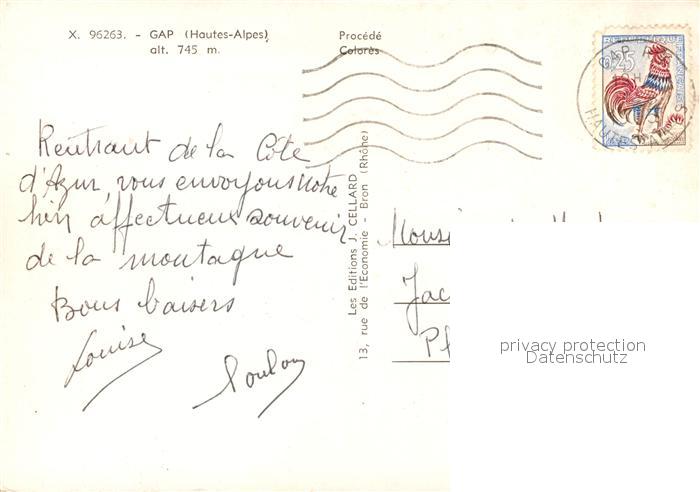 X. 96263. - GAP (Hautes-Alpes)
alt. 745 m.
Procédé
Colorés
0,25
GAP
HAUTES ALPES
Rentrant de la Côte
d'Azur, vous envoyons notre
bien affectueux souvenir
de la montagne
Bons baisers
Louise
Loulou
Les Editions J. CELLARD
13, rue de l'Economie - Bron (Rhône)
Jac
privacy protection
Datenschutz